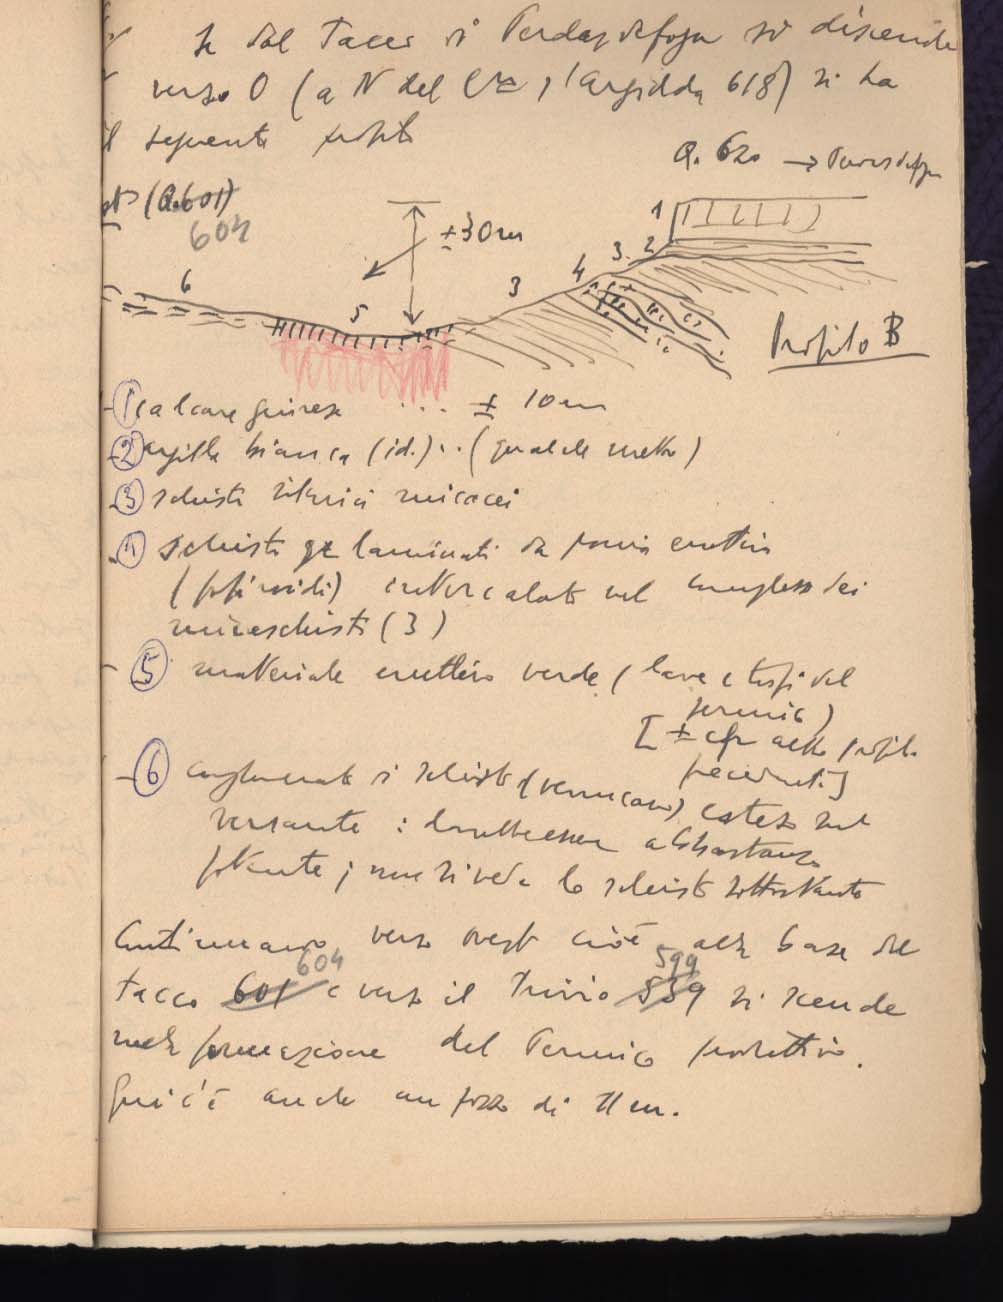 Se dal Tacco di Perdasdefogu si discende
verso O (a N del Cle , 618) si ha
il seguente profilo
Q. 620 → Perdasdefogu
(Q.601)
604
± 30 m
1
2
3
4
3
5
6
Profilo B
1 calcare giurese ... ± 10 m
2 argilla bianca (id.) .. (qualche metro)
3 schisti silurici micacei
4 schisti laminati da eruttiva
(porfiroidi) intercalati nel complesso dei
micaschisti (3)
5 materiale eruttivo verde (lave e tufi del
permico)
[± cfr altro profilo
precedente]
6 conglomerato di schisti (verrucano) esteso sul
versante : dovrebbe essere abbastanza
potente ; non si vede lo schisto sottostante
Continuando verso ovest cioè alla base del
604 599
tacco 601 e verso il Trivio 539 si scende
nella formazione del Permico produttivo.
Qui c'è anche un pozzo di 11 m.